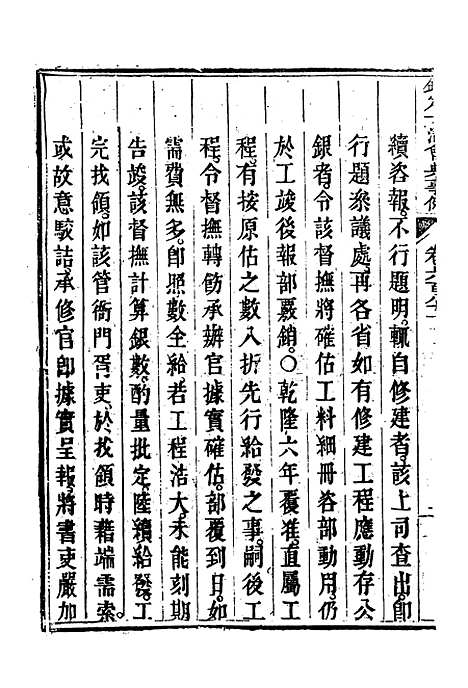 續咨報。不行題明。輒自修建者。該上司查出。卽
行題參議處。再各省如有修建工程應動存公
銀者。令該督撫將確估工料細冊咨部動用。仍
於工竣後報部覈銷。○乾隆六年覆准。直屬工
程。有按原估之數入折先行給發之事。嗣後工
程。令督撫轉飭承辦官據實確估。部覆到日。如
需費無多。卽照數全給。若工程浩大。未能刻期
告竣。該督撫計算銀數。酌量批定。陸續給發。工
完找領。如該管衙門胥吏。於找領時藉端需索。
或故意駮詰。承修官卽據實呈報。將書吏嚴加